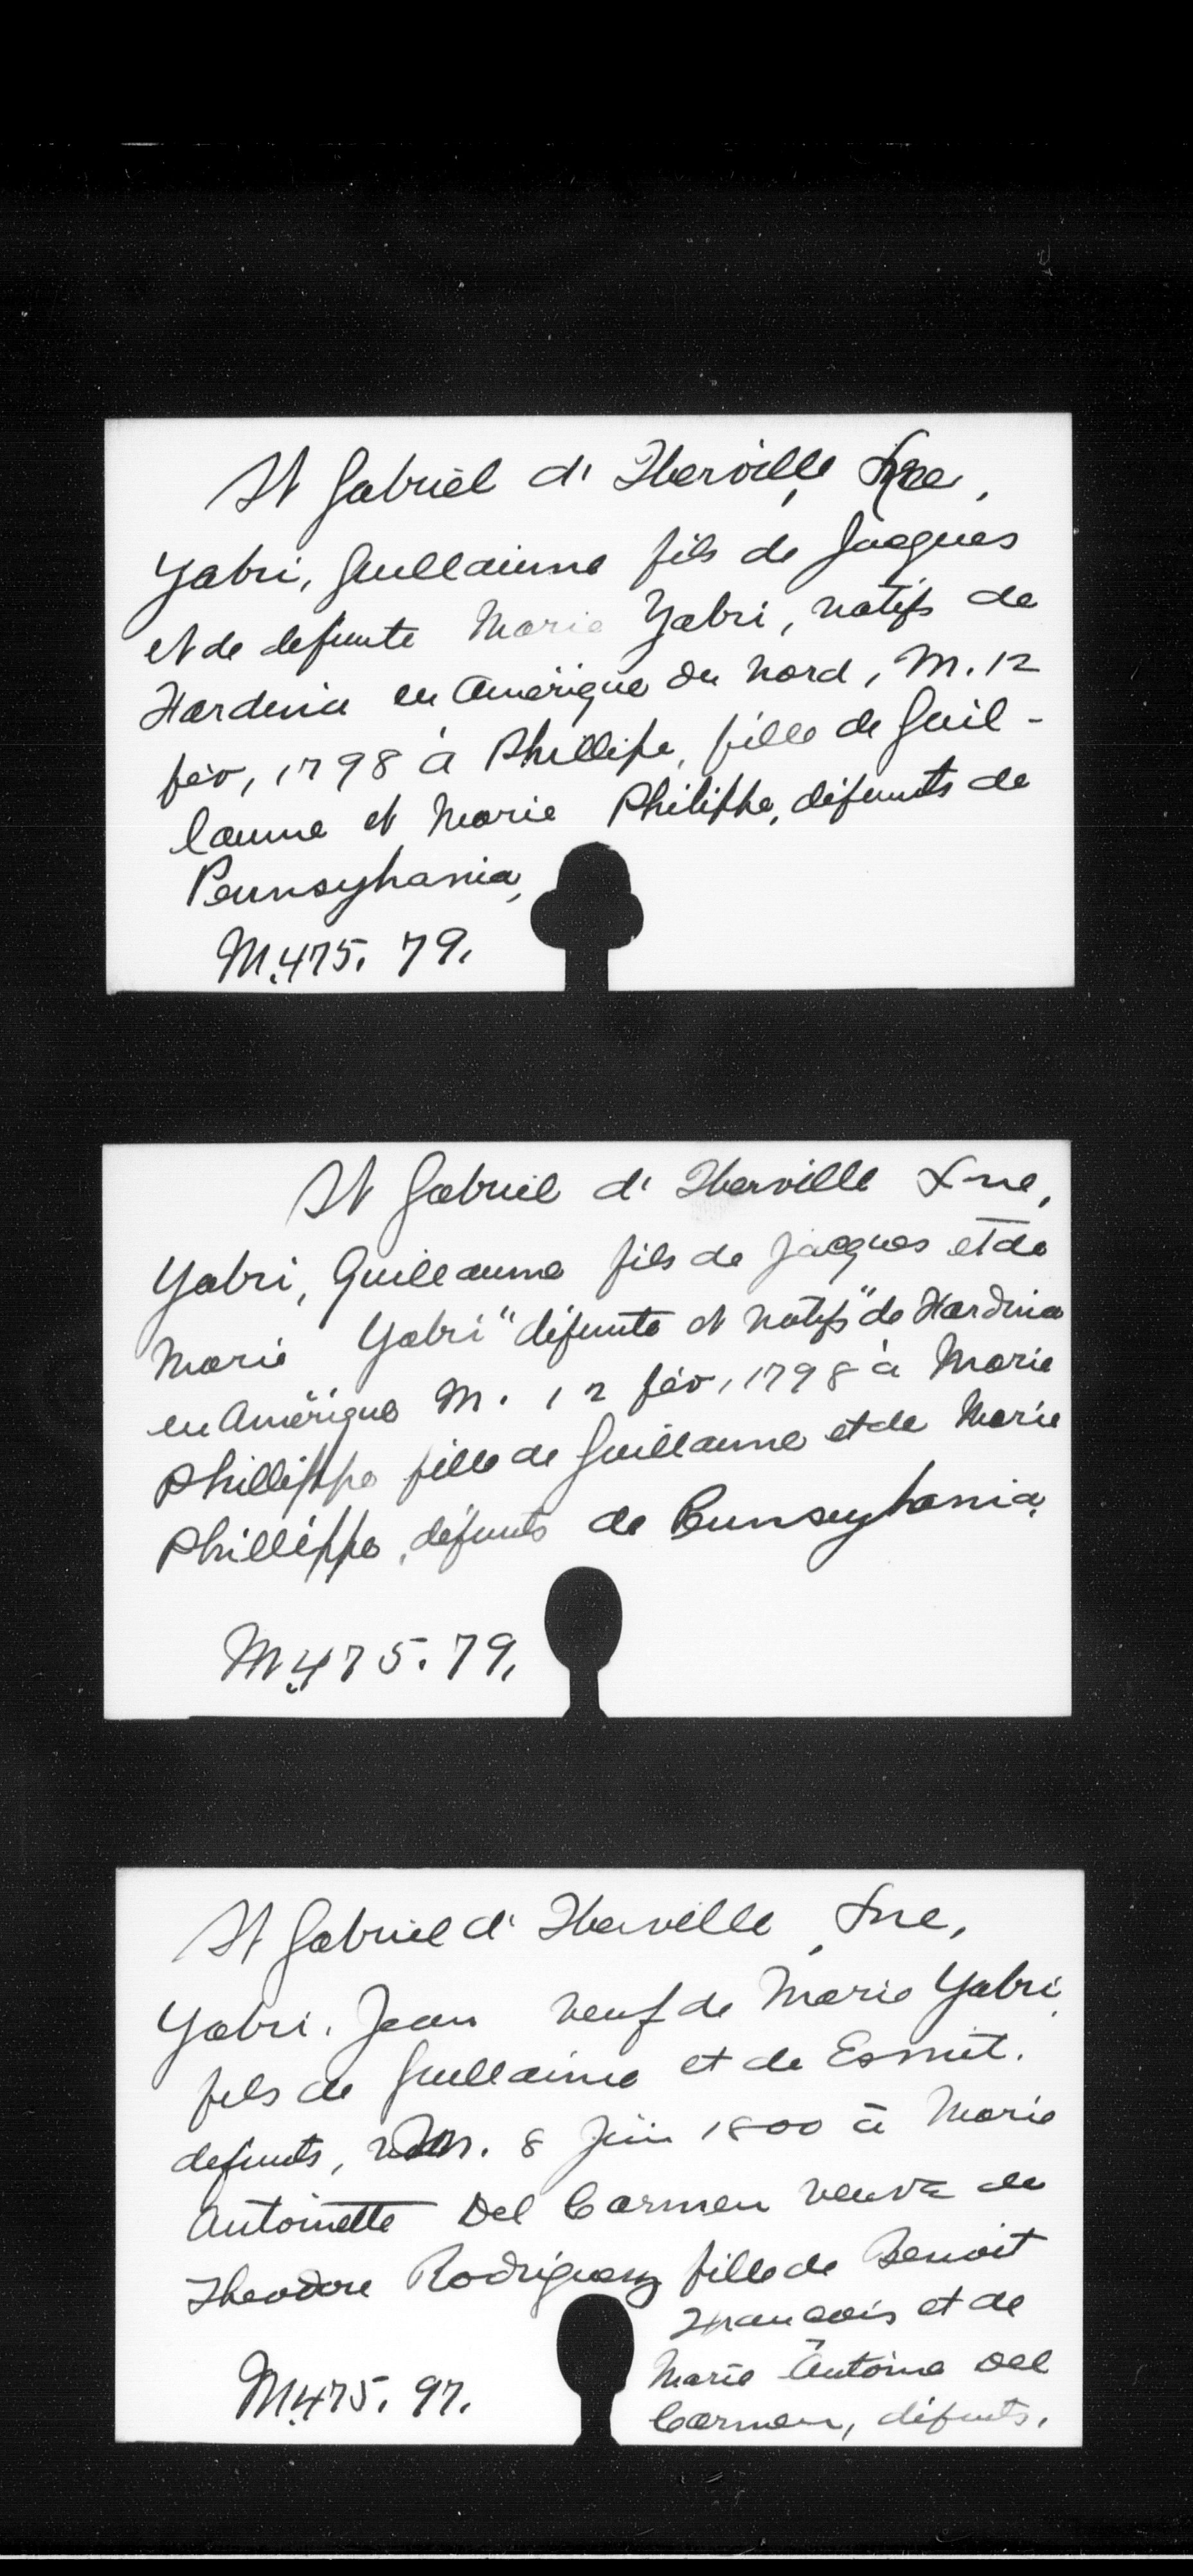 St Gabriel d' Iberville Lne,
Yabri, Guillaume fils de Jacques
et de defunte Marie Yabri, natifs de
Hardinia en Amérique du Nord, M. 12
fév, 1798 à Phillipe, fille de Guil-
laume et Marie Philippe, défunts de
Pennsylvania,
M.475. 79.
St Gabriel d' Iberville Lne,
Yabri, Guillaume fils de Jacques et de
Marie Yabri "défunte et natifs" de Hardinia
en Amérique M. 12 fév, 1798 à Marie
Phillippe fille de Guillaume et de Marie
Phillippe, défunts de Pennsylvania,
M.475. 79,
St Gabriel d' Iberville, Lne,
Yabri, Jean veuf de Marie Yabri
fils de Guillaime et de Esmit.
defunts, M. 8 Juin 1800 à Marie
Antoinette Del Carmen veuve de
Theodore Rodriguez fille de Benoit
Francois et de
Marie Antoine Del
Carmen, défunts.
M.475. 97.